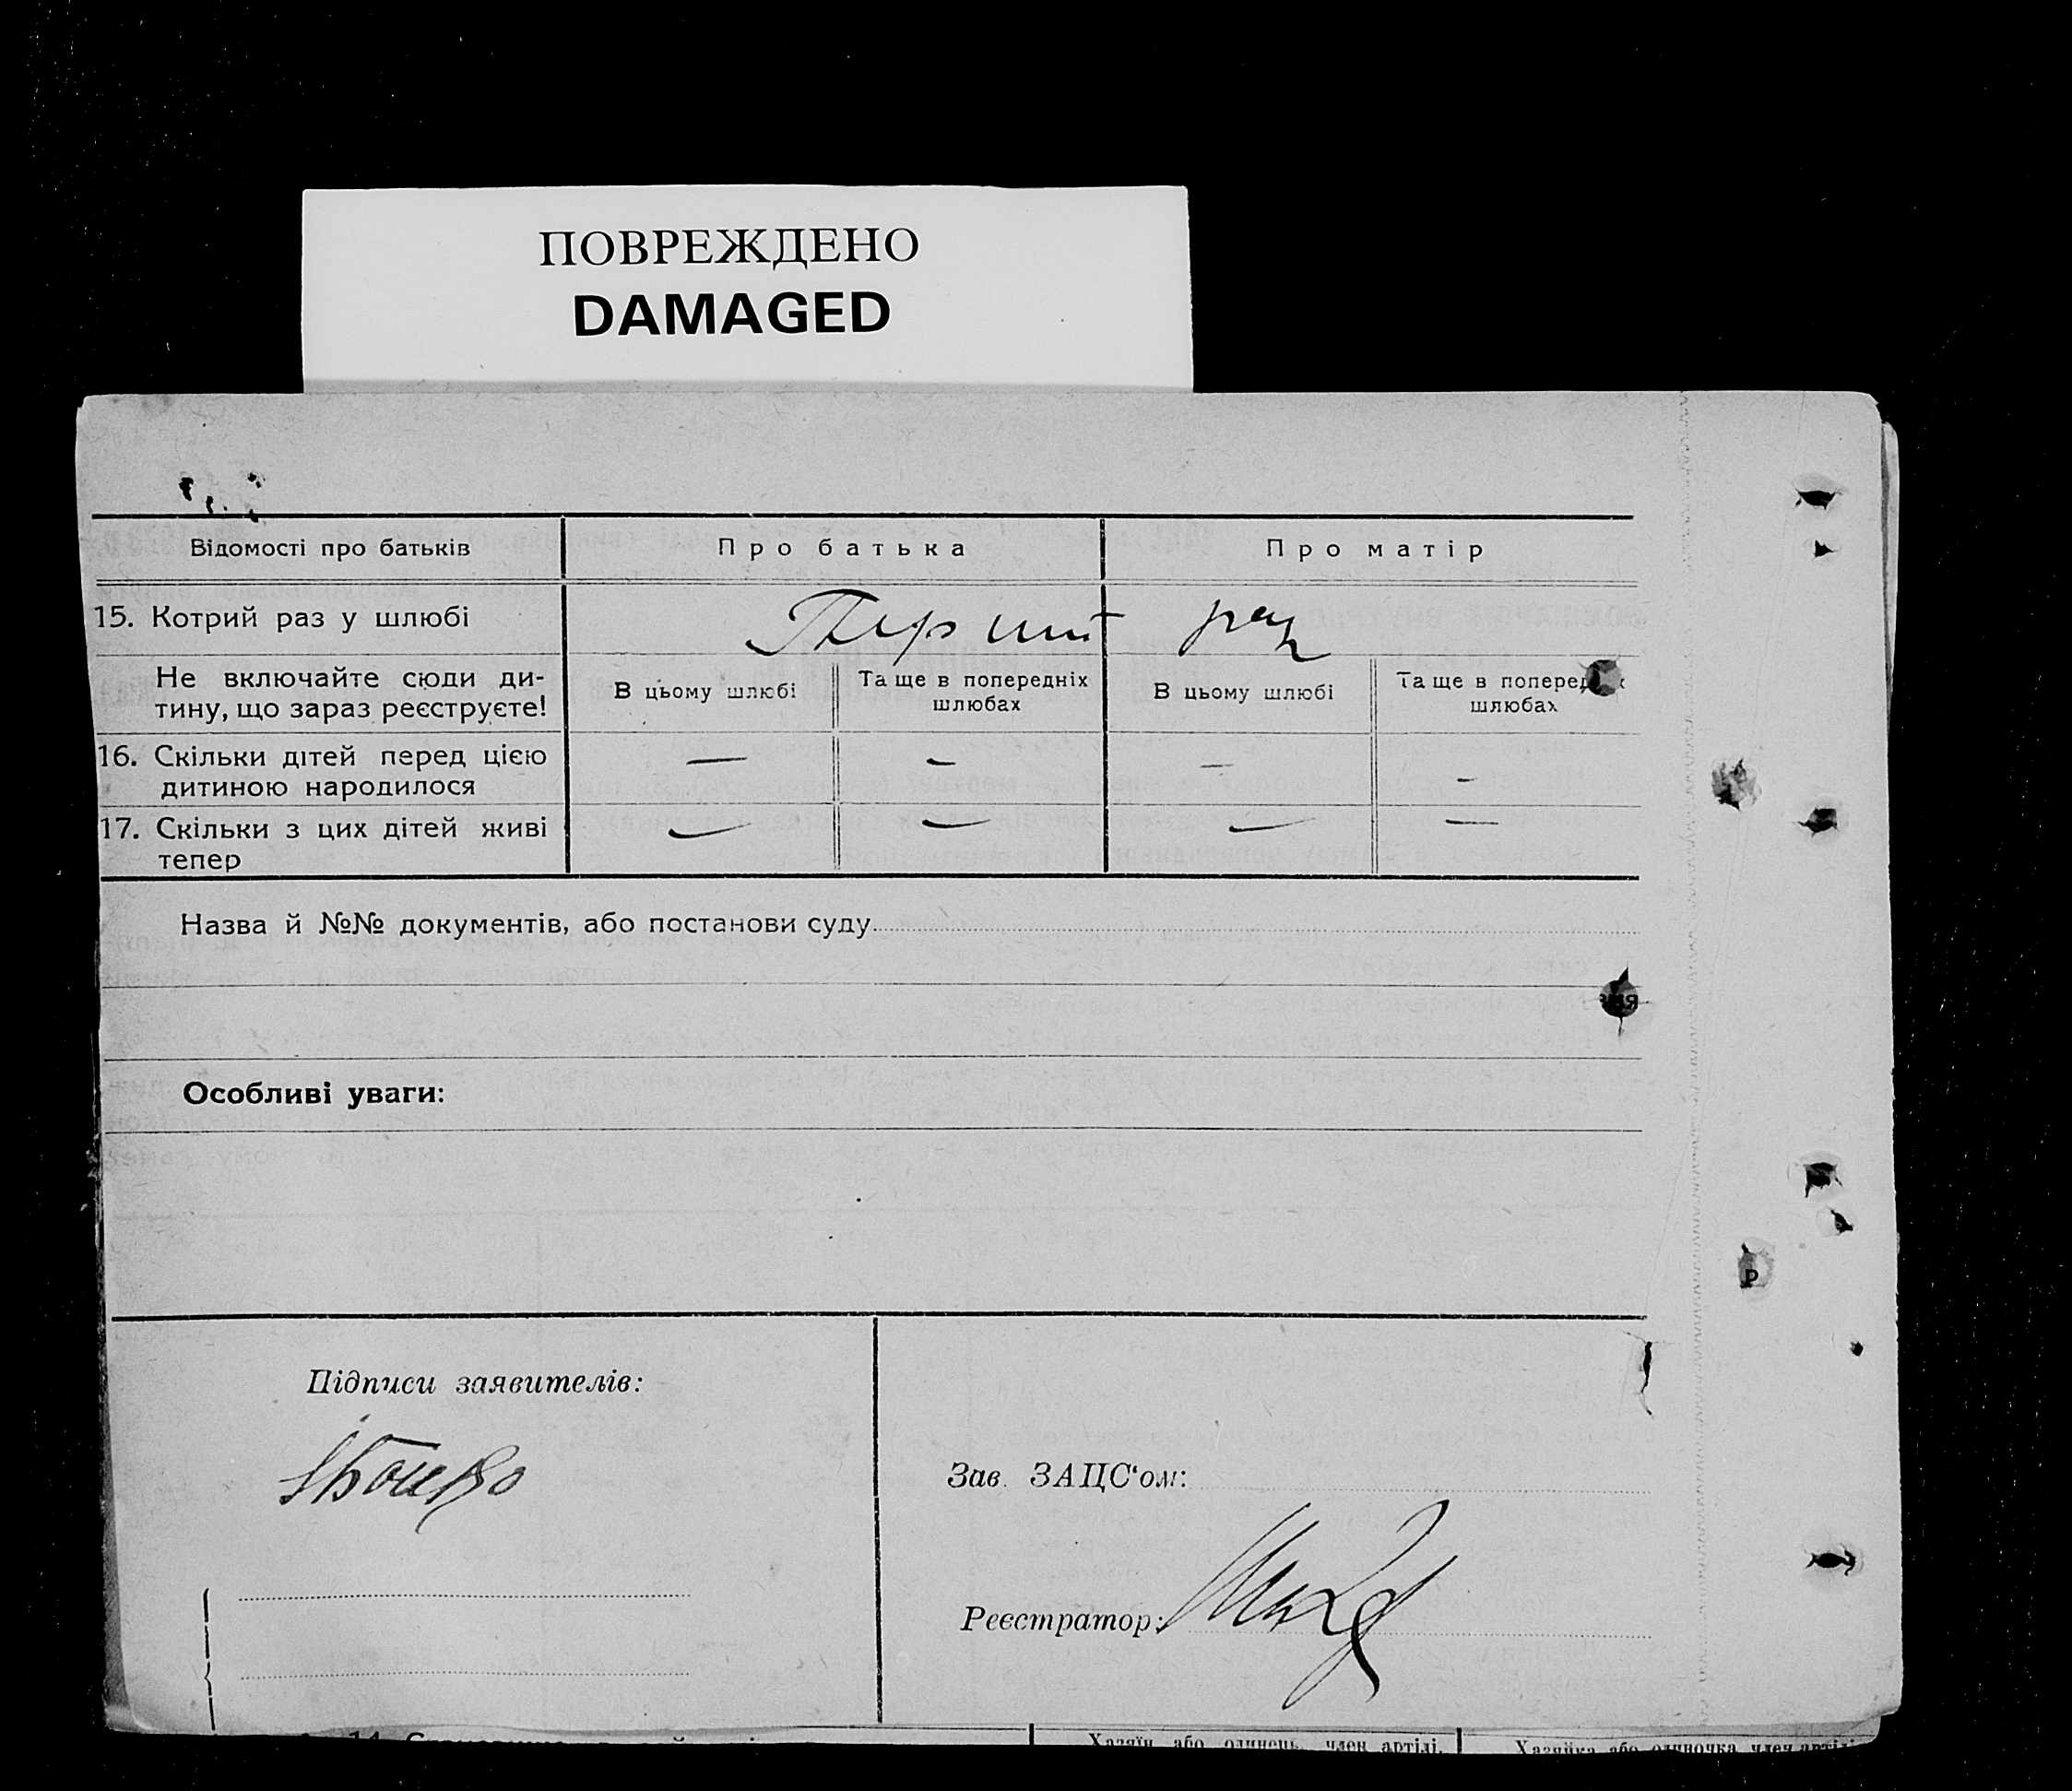 ПОВРЕЖДЕНО
DAMAGED
Відомості про батьків
Про батька
Про матір
15. Котрий раз у шлюбі
Перший раз
Не включайте сюди ди-
тину, що зараз реєструєте!
В цьому шлюбі
Та ще в попередніх
шлюбах
В цьому шлюбі
Та ще в поперед
шлюбах
16. Скільки дітей перед цією
дитиною народилося
—
—
—
—
17. Скільки з цих дітей живі
тепер
—
—
—
—
Назва й №№ документів, або постанови суду
Особливі уваги:
Р
Підписи заявителів:
Зав. ЗАЦС‘ом:
Реєстратор:
Хазяїн або одинець, член артілі,
Хазяйка або одиночка член артілі